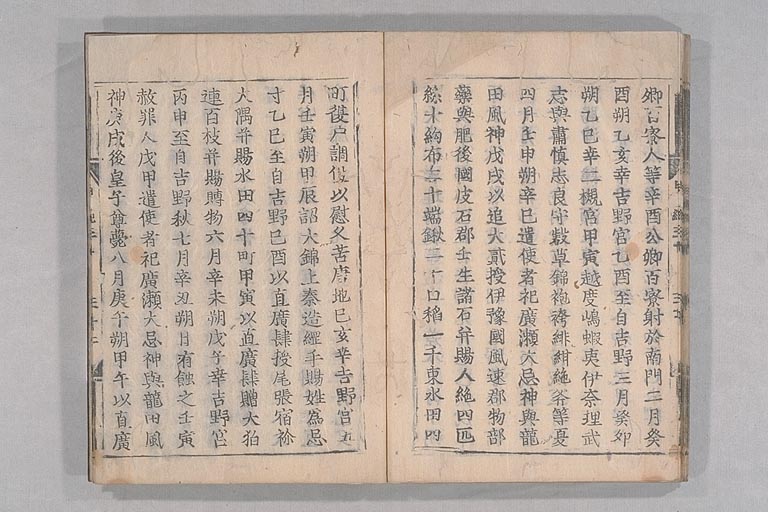 卿百寮人等辛酉公卿百寮射於南門二月癸
酉朔乙亥幸吉野宮乙酉至自吉野三月癸卯
朔乙巳幸二槻宮甲寅越度嶋蝦夷伊奈理武
志與肅慎志良守叡草錦袍袴緋紺絁斧等夏
四月壬申朔辛巳遣使者祀廣瀨大忌神與龍
田風神戊戌以追大貳授伊豫國風速郡物部
藥與肥後國皮石郡壬生諸石幷賜人絁四匹
絲十絇布二十端鍬二十口稻一千束水田四
町復戶調役以慰久苦唐地己亥幸吉野宮五
月壬寅朔甲辰詔大錦上秦造綱手賜姓爲忌
寸乙巳至自吉野己酉以直廣肆授尾張宿祢
大隅幷賜水田四十町甲寅以直廣肆贈大狛
連百枝幷賜賻物六月辛未朔戊子幸吉野宮
丙申至自吉野秋七月辛丑朔日有蝕之壬寅
赦罪人戊申遣使者祀廣瀨大忌神與龍田風
神庚戌後皇子尊薨八月庚午朔甲午以直廣